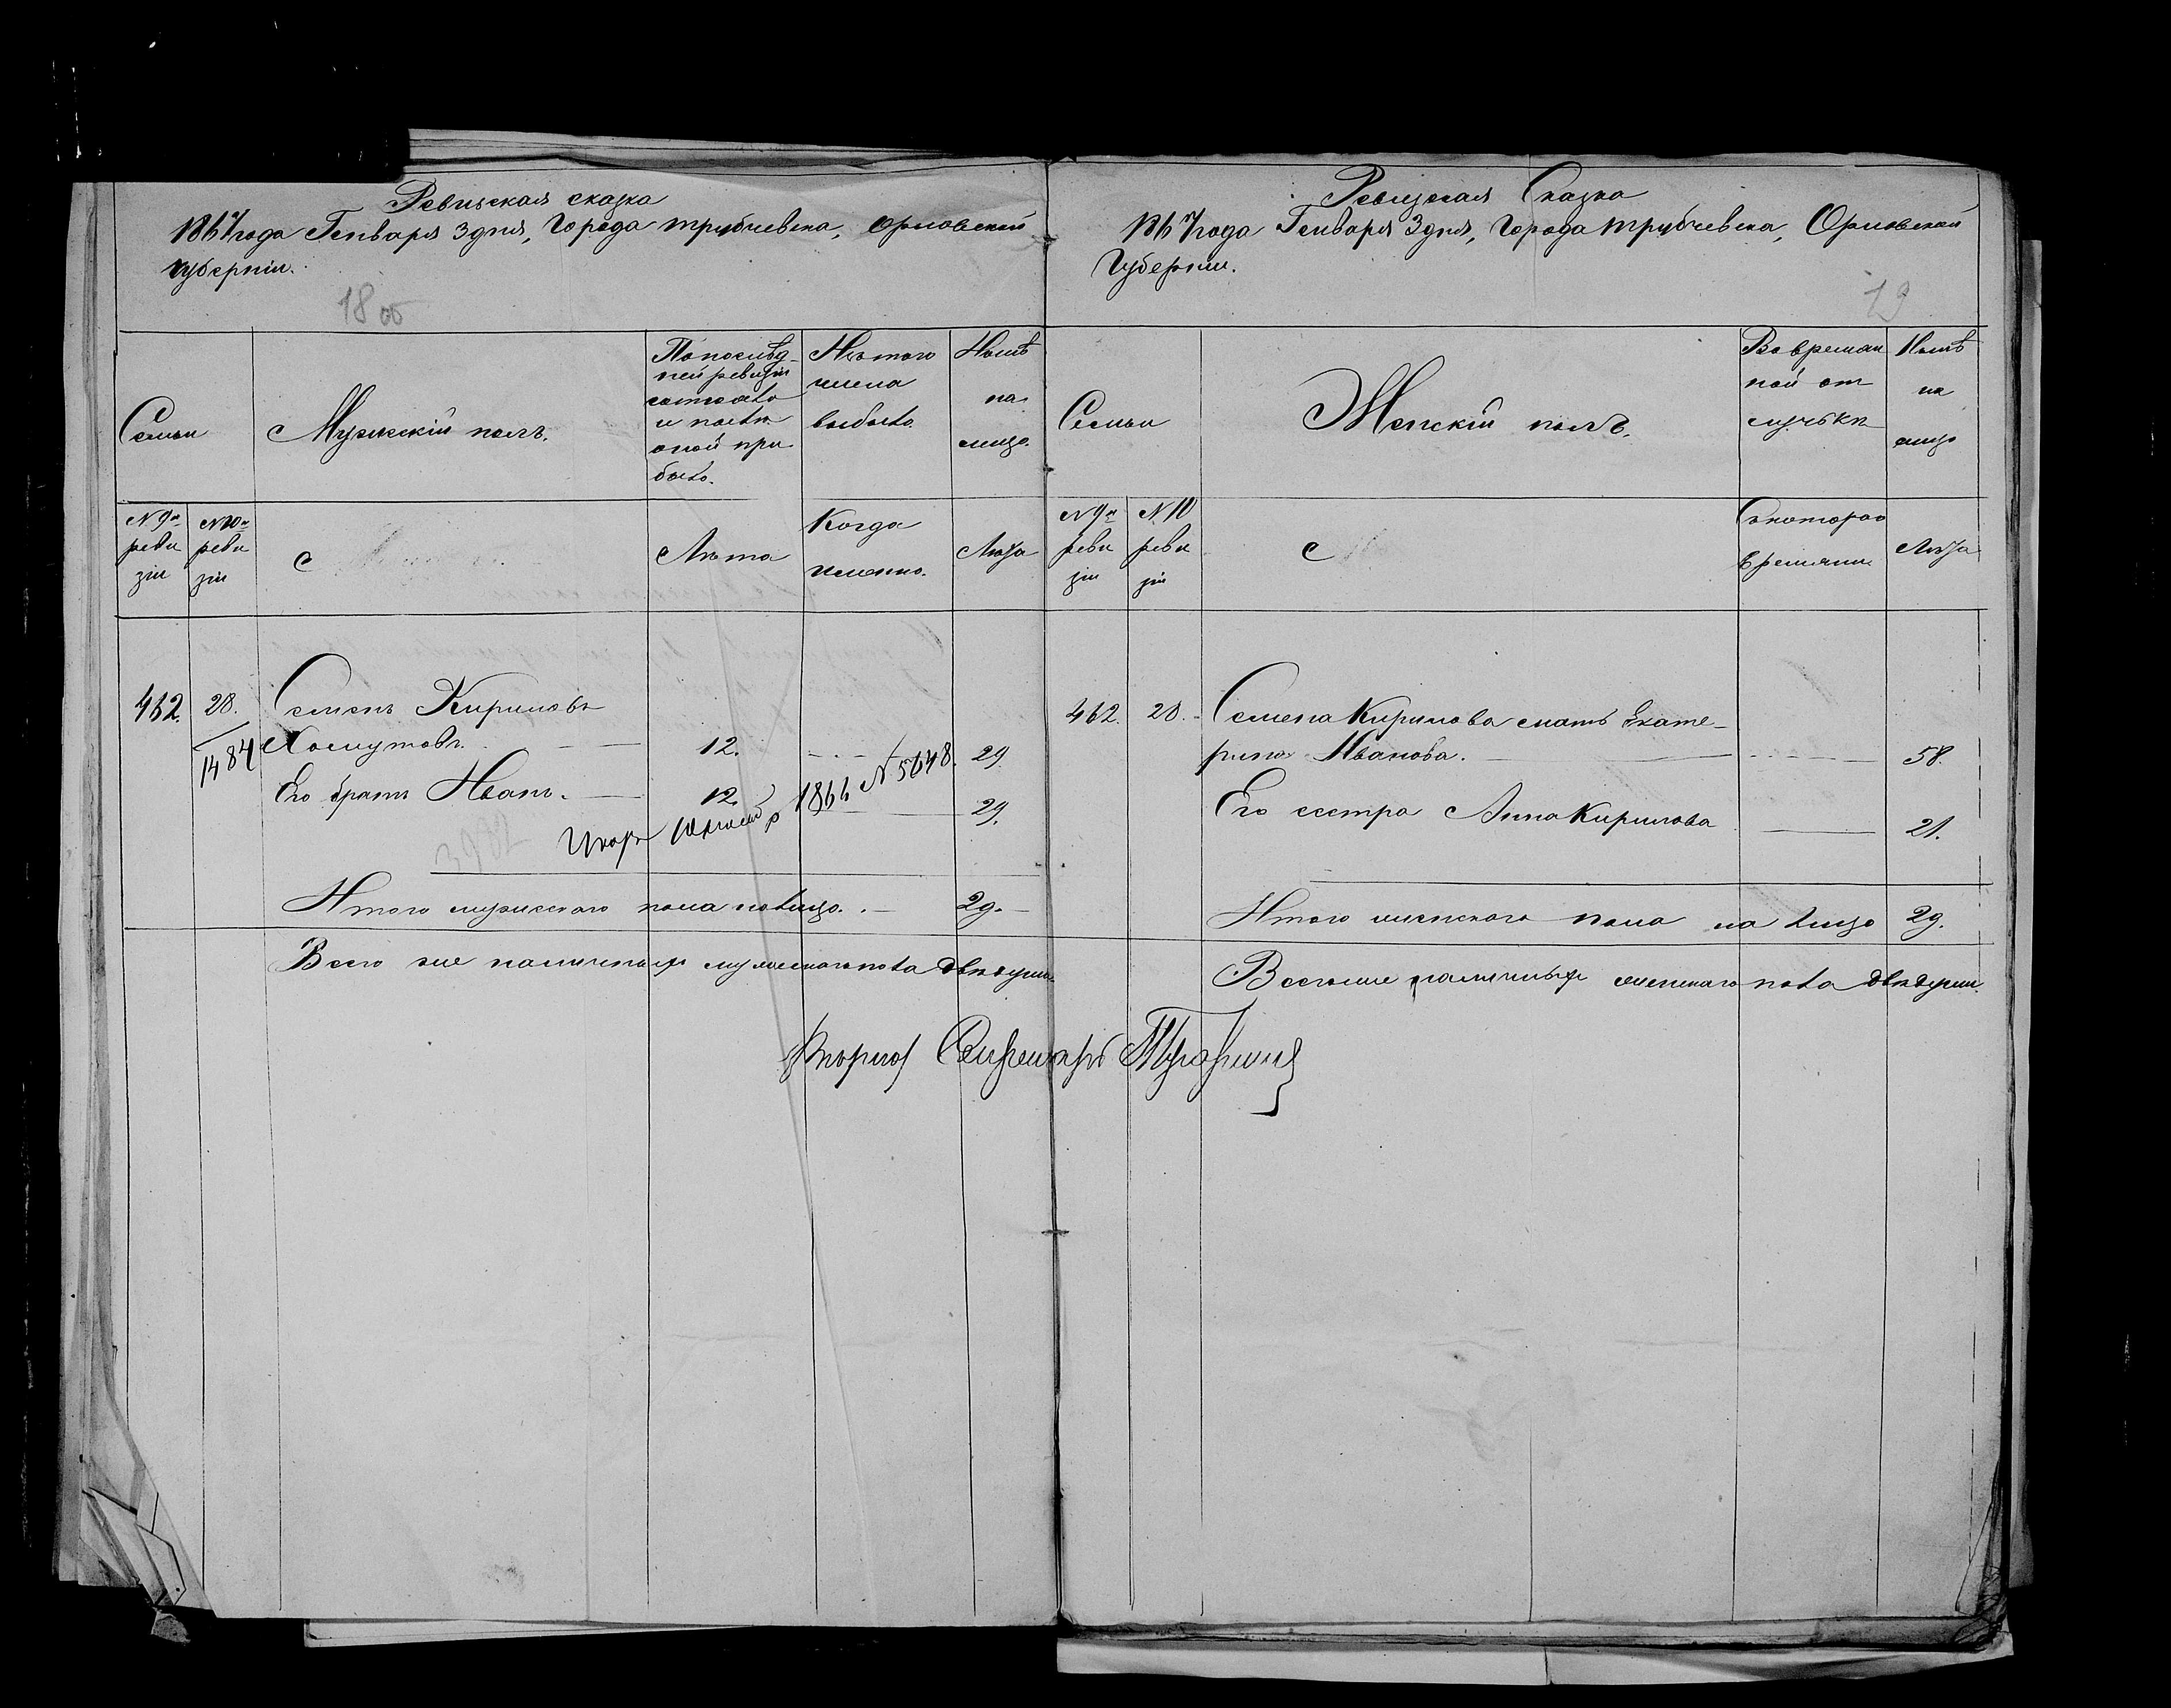 Ревизская сказка
1867 года Генваря 3 дня, Города Трубчевска, Орловской
Губерніи.
18 об
Семьи
Мужескій полъ.
По послѣд-
ней ревизіи
состояло
и послѣ
оной при
было.
Изъ того
числа
выбыло
Нынѣ
на
лицо.
№ 9й
реви
зіи
№ 10й
реви
зіи
Лѣта
Когда
именно.
Лѣта
462. 28. Семенъ Кириловъ
1484 Хомутовъ. 12. 29
Его братъ Иванъ. 12. 29.
1866 № 5648.
3982
Итого мужескаго пола на лицо. 29.
Всего же наличныхъ мужескаго пола двѣ души.
Ревизская Сказка
1867 года Генваря 3 дня, Города Трубчевска, Орловской
Губерніи.
19
Семьи
Женскій полъ.
Во времян
ной от
лучькѣ
Нынѣ
на
лицо
№ 9й
реви
зіи
№ 10
реви
зіи
Съ котораго
времяни
Лѣта
462. 28. Семена Кирилова мать Екате-
рина Иванова. 58.
Его сестра Анна Кирилова 21.
Итого женскаго пола на лицо 29.
Всего же наличныхъ женскаго пола двѣ души.